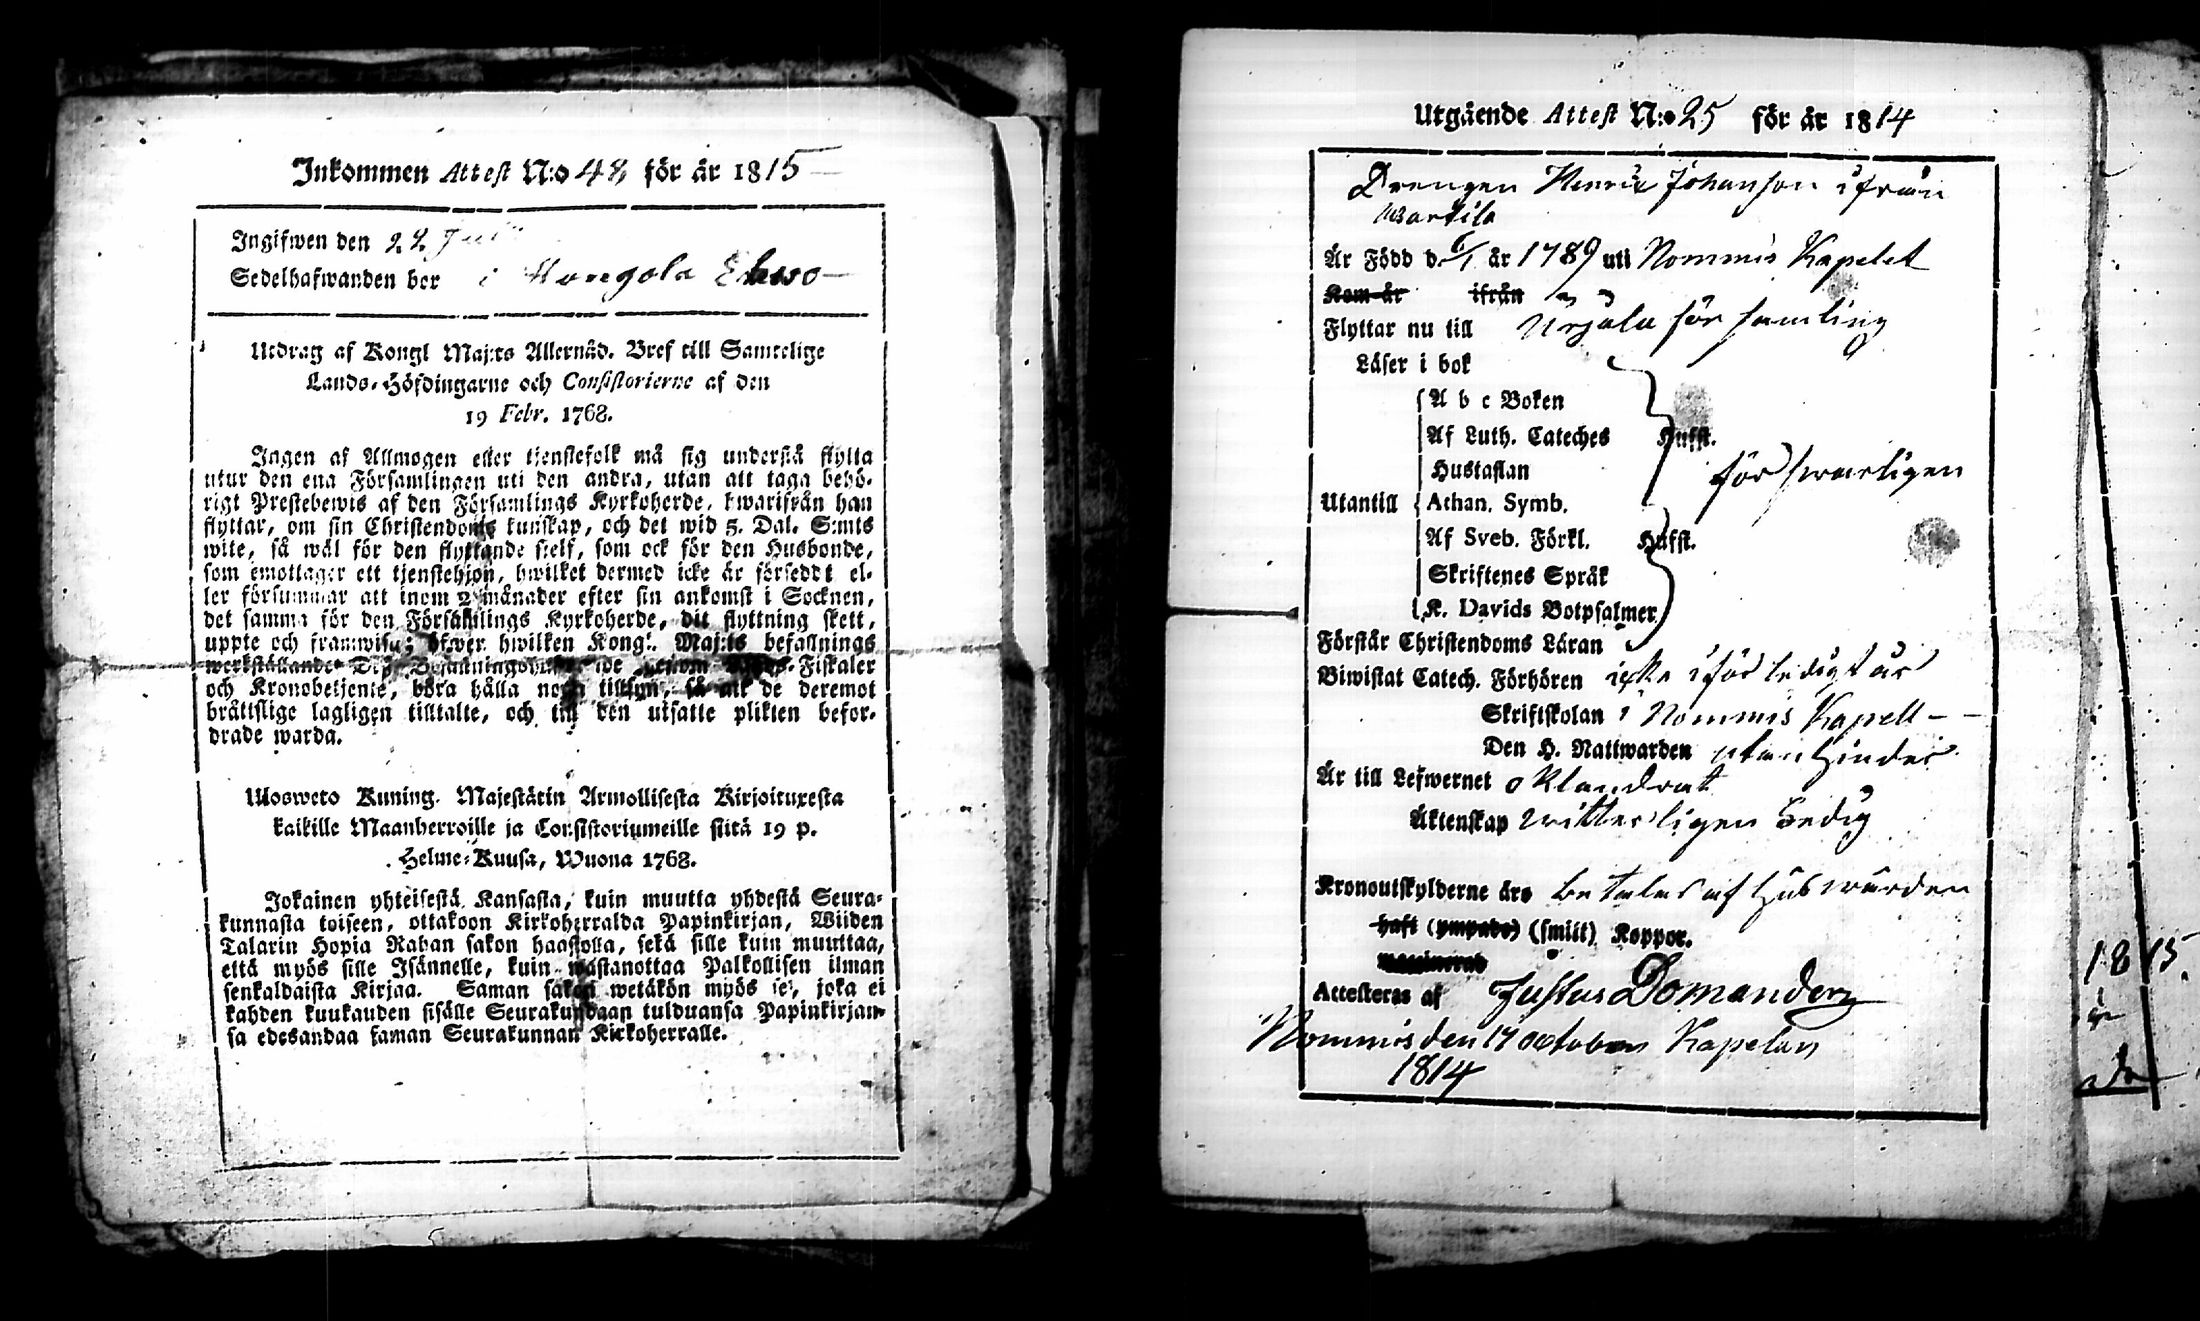 Inkommen Attest N:o 48, för år 1815
Ingifwen den 22 Jul
Sedelhafwanden bor i
Utdrag af Kongl Maj:ts Allernåd. Bref till Samtelige
Lands-Höfdingarne och Consistorierne af den
19 Febr. 1768.
Ingen af Allmogen eller tjenstefolk må sig understå flytta
utur den ena Församlingen uti den andra, utan att taga behö-
rigt Prestebewis af den Församlings Kyrkoherde, hwarifrån han
flyttar, om sin Christendoms kunskap, och det wid 5. Dal. S:mts
wite, så wäl för den flyttande sjelf, som ock för den Husbonde,
som emottager ett tjenstehjon, hwilket dermed icke är förseddt el-
ler försummar att inom 2 månader efter sin ankomst i Socknen,
det samma för den Församlings Kyrkoherde, dit flyttning skett,
uppte och framwisa; öfwer hwilken Kongl. Maj:ts befallnings
werkställande Fiskaler
och Kronobetjente, böra hålla noga tillsyn, så att de deremot
bråttslige lagligen tilltalte, och till den utsatte plikten befor-
drade warda.
Ulosweto Kuning. Majestätin Armollisesta Kirjoituxesta
kaikille Maanherroille ja Consistoriumeille siitä 19 p.
Helme-Kuusa, Wuona 1768.
Jokainen yhteisestä Kansasta, kuin muutta yhdestä Seura-
kunnasta toiseen, ottakoon Kirkoherralda Papinkirjan, Wiiden
Talarin Hopia Rahan sakon haastolla, sekä sille kuin muuttaa,
että myös sille Isännelle, kuin wastanottaa Palkollisen ilman
senkaldaista Kirjaa. Saman sakon wetäkön myös se, joka ei
kahden kuukauden sisälle Seurakundaan tulduansa Papinkirjan-
sa edesandaa saman Seurakunnan Kirkoherralle.
Utgående Attest N:o 25 för år 1814
Drengen Henric Johansson ifrån
Wartila
Är Född d. 6/1 år 1789 uti Nommis Kapelet
Kom år ifrån
Flyttar nu till Urjala församling
Läser i bok
A b c Boken
Af Luth. Cateches Hufst.
Hustaflan
försvarligen
Utantill Athan. Symb.
Af Sveb. Förkl. Hufst.
Skriftenes Språk
K. Davids Botpsalmer
Förstår Christendoms Läran
Biwistat Catech. Förhören icke
Skriftskolan i Nommis Kapell
Den H. Nattwarden utan hinder
Är till Lefwernet oklandrat
Äktenskap witterligen Ledig
Kronoutskylderne äro betalas af Husbwärden
haft (ympade) (smitt) Koppor.
Attesteras af Justus Domander
Nommis den 17 october Kapelan
1814
1815.